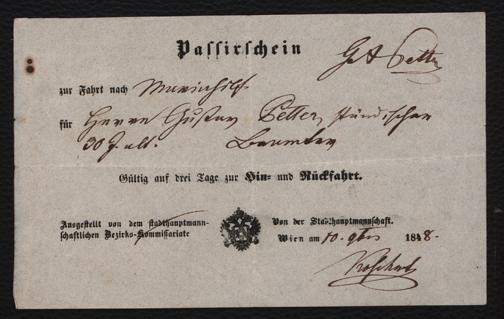 Passirschein
G A Petter
zur Fahrt nach Mariahilf
für Herrn Gustav Petter, ständischen
30 J. alt. Beamten
Gültig auf drei Tage zur Hin- und Rückfahrt.
Ausgestellt von dem stadthauptmann-
schaftlichen Bezirks-Kommissariate
Von der Stadthauptmannschaft.
Wien am 10. 9ber 1848.